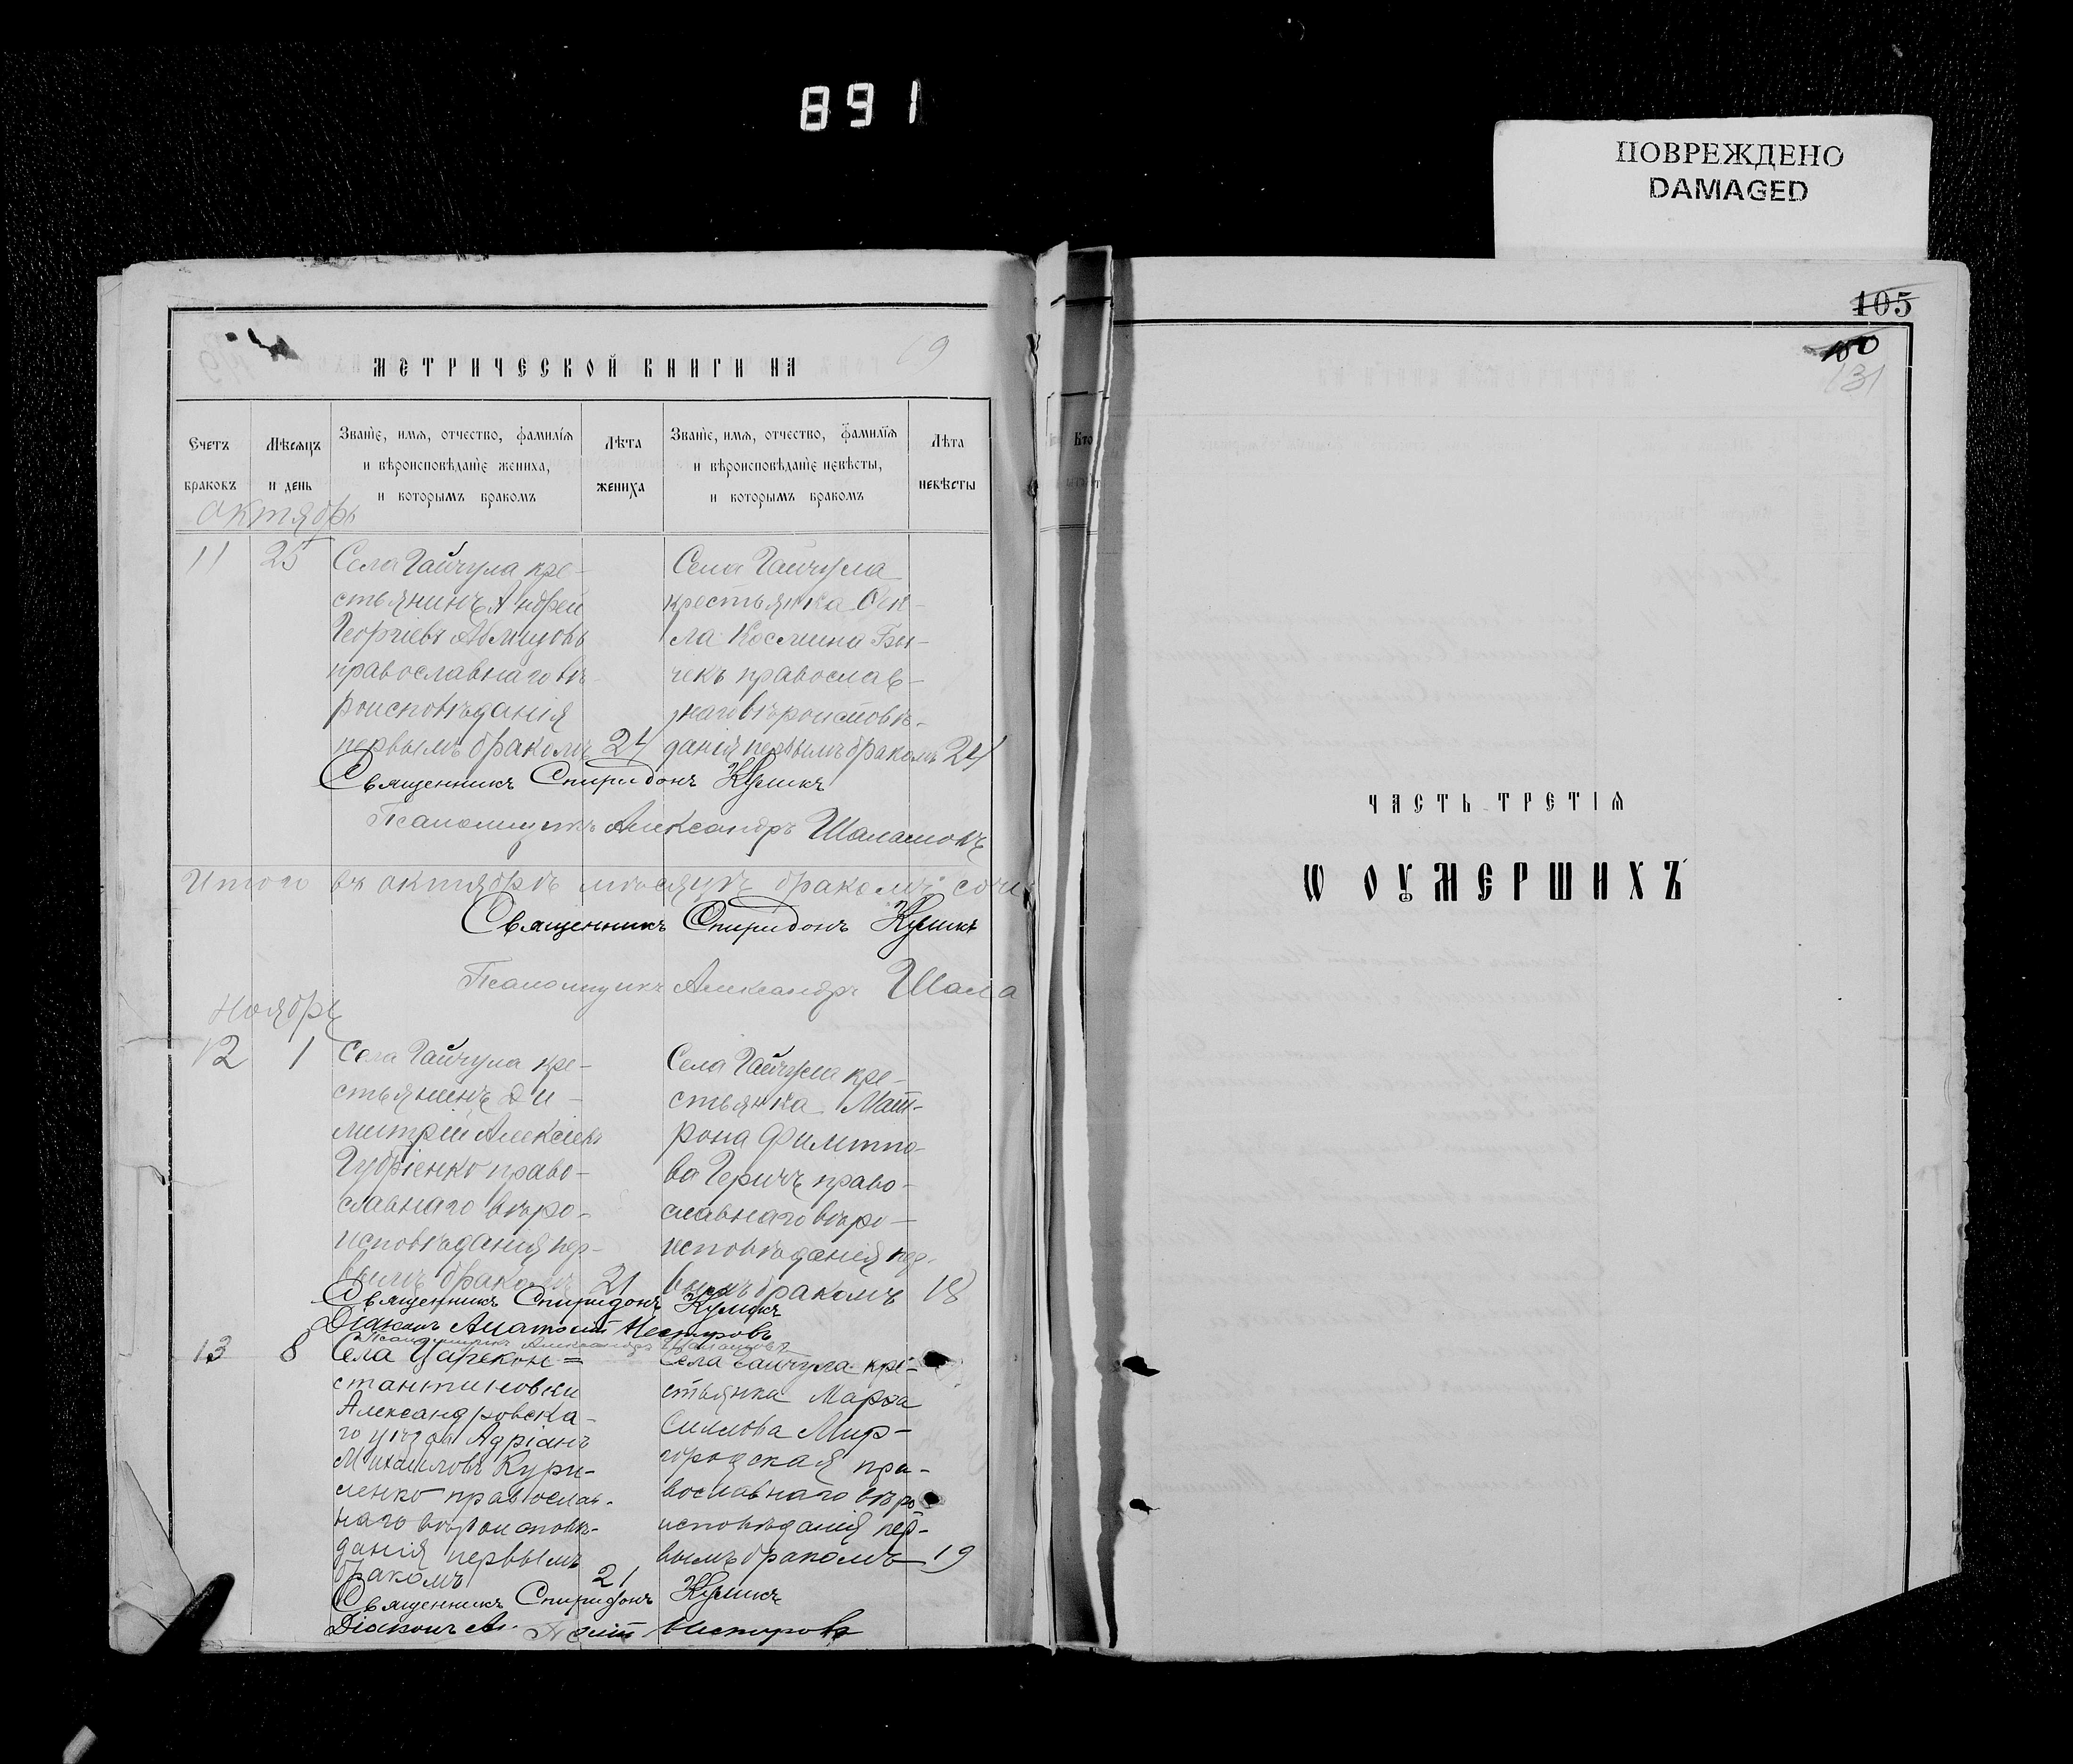 891
ПОВРЕЖДЕНО
DAMAGED
МЕТРИЧЕСКОЙ КНИГИ НА
19
Счетъ браковъ
Мѣсяцъ и день
Званїе, имя, отчество, фамилїя и вѣроисповѣданїе жениха, и которымъ бракомъ
Лѣта жениха
Званїе, имя, отчество, фамилїя и вѣроисповѣданїе невѣсты, и которымъ бракомъ
Лѣта невѣсты
Октябрь
11
25
Села Гайчула кре-
стьянинъ Андрей
Георгіевъ
православнаго вѣ-
роисповѣданія
первымъ бракомъ
24
Села Гайчула
крестьянка Фек-
ла Космина Бы-
чекъ православ-
наго вѣроисповѣ-
данія первымъ бракомъ
24
Священникъ Спиридонъ Куликъ
Псаломщикъ Александръ Шаламовъ
Итого въ октябрѣ мѣсяцѣ бракомъ сочи
Священникъ Спиридонъ Куликъ
Псаломщикъ Александръ Шала
Ноябрь
12
1
Села Гайчула кре-
стьянинъ Ди-
митрій Алексіевъ
Губріенко право-
славнаго вѣро-
исповѣданія пер-
вымъ бракомъ
21
Села Гайчула кре-
стьянка Мат-
рона Филиппо-
ва Геричъ право-
славнаго вѣро-
исповѣданія пер-
вымъ бракомъ
18
Священникъ Спиридонъ Куликъ
Діаконъ Анатолій Нестеровъ
Псаломщикъ Александръ Шаламовъ
13
8
Села Царекон=
стантиновки
Александровска-
го уѣзда Адріанъ
Михаиловъ Кури-
ленко православ-
наго вѣроисповѣ-
данія первымъ
бракомъ
21
Села Гайчула кре-
стьянка Марѳа
Силлова Мир-
городская пра-
вославнаго вѣро-
исповѣданія пер-
вымъ бракомъ
19
Священникъ Спиридонъ Куликъ
Діаконъ Нестеровъ
Кто
105
131
ЧАСТЬ ТРЕТІЯ
Ѡ ОУМЕРШИХЪ